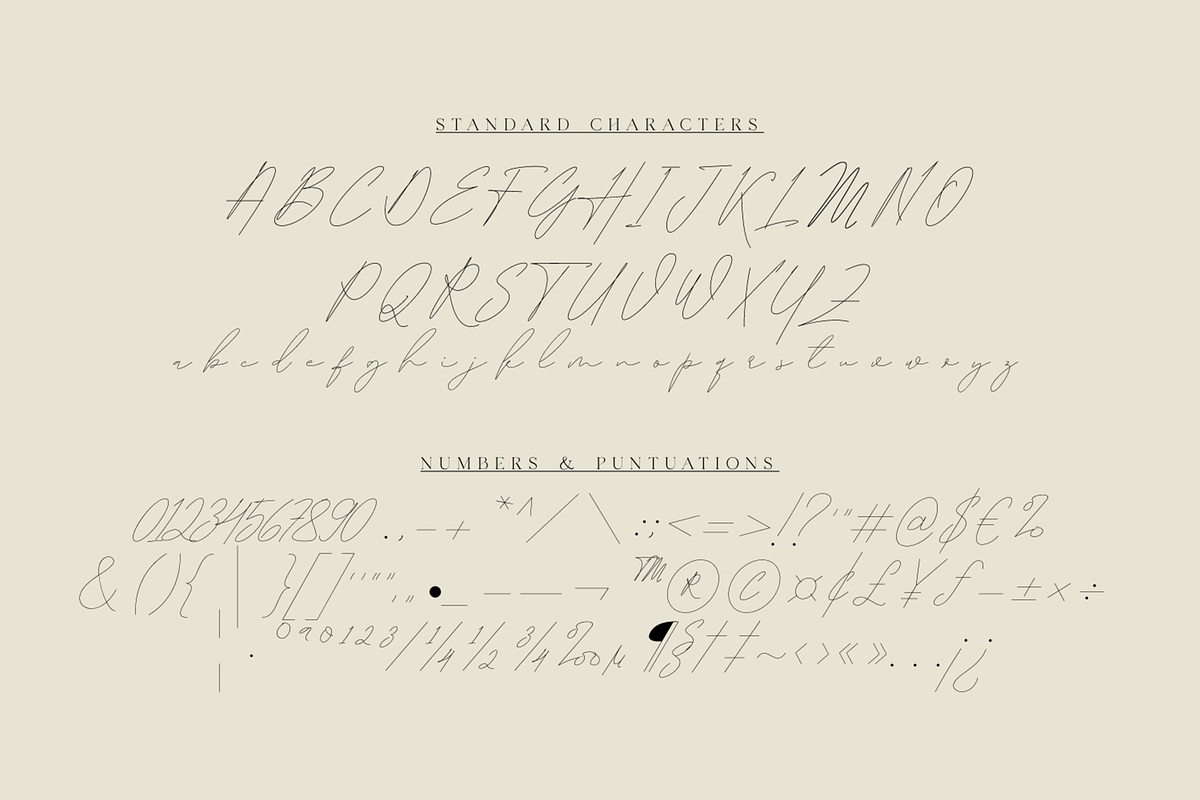 STANDARD CHARACTERS
A B C D E F G H I J K L M N O
P Q R S T U V W X Y Z
a b c d e f g h i j k l m n o p q r s t u v w x y z
NUMBERS & PUNTUATIONS
01234567890 . , - + * ^ / \ : ; < = > ! ? ' " # @ $ € %
& ( ) { | } [ ] ' ' " " , „ • _ – — ¬ ™ ® © ¤ ¢ £ ¥ ƒ − ± × ÷
¦ · º ª ⁰ ¹ ² ³ ⁄ ¼ ½ ¾ ‰ µ ¶ § † ‡ ~ ‹ › « » … ¡ ¿